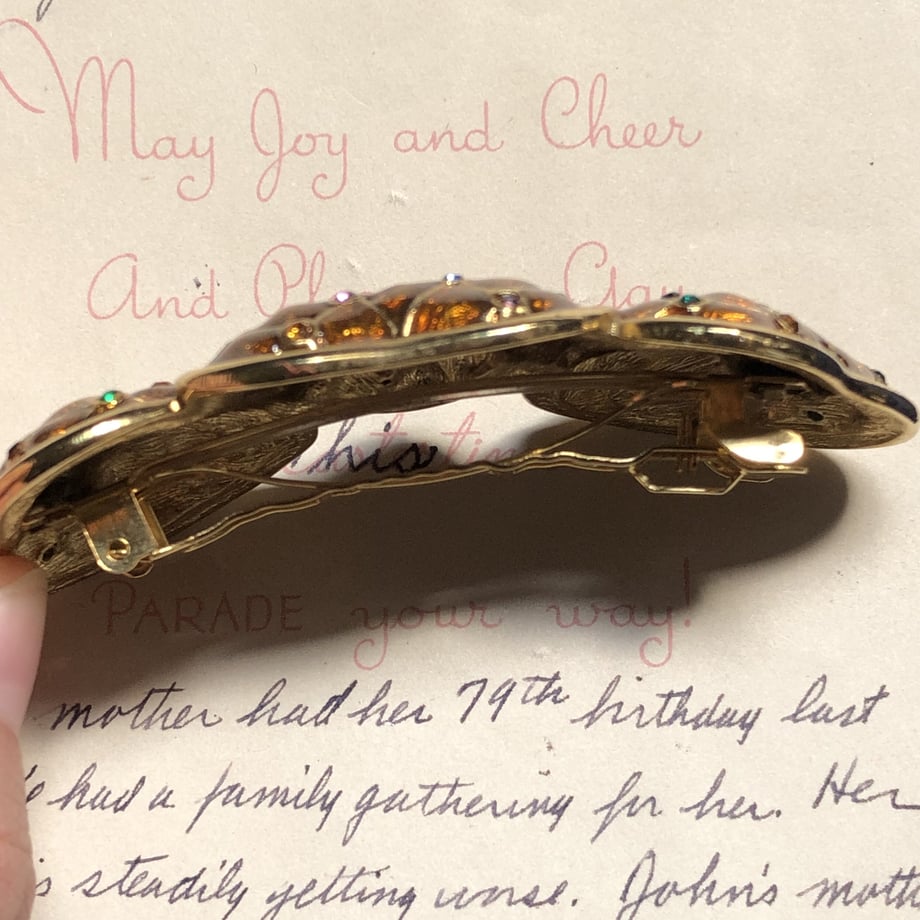 May Joy and Cheer
And Gay
this
PARADE your way!
mother had her 79th birthday last
had a family gathering for her. Her
is steadily getting worse. John's moth